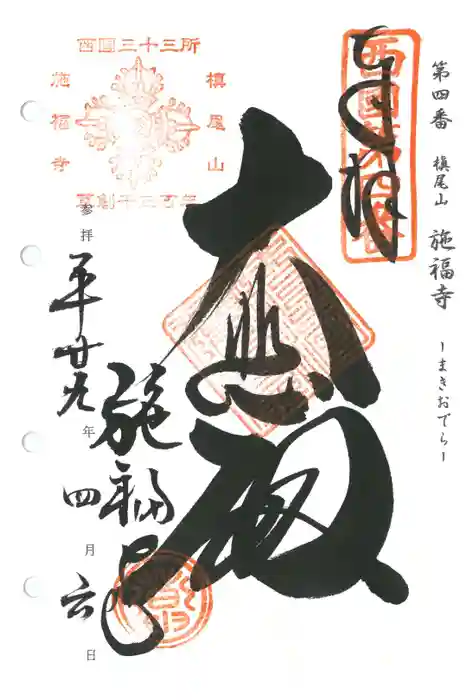 第四番 槇尾山 施福寺 ーまきおでらー
奉拝
西國第四番
大悲殿
西國三十三所
槇尾山
施福寺
草創千三百年
施福寺
参拝 平廿九年四月六日